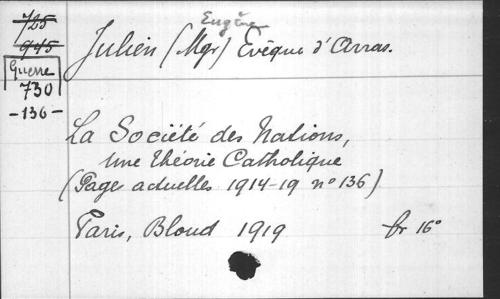 725
945
Guerre
730
-136-
Eugène
Julien (Mgr) Evêque d'Arras.
La Société des Nations,
une théorie Catholique
(Pages actuelles 1914-19 n° 136)
Paris, Bloud 1919 br 16°